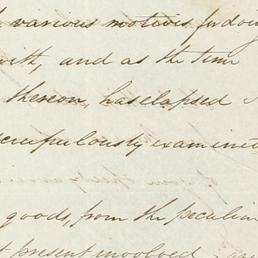 various motives, induc
with, and as the time
thereon, has elapsed
scrupulously examined
goods, from the peculia
present involved